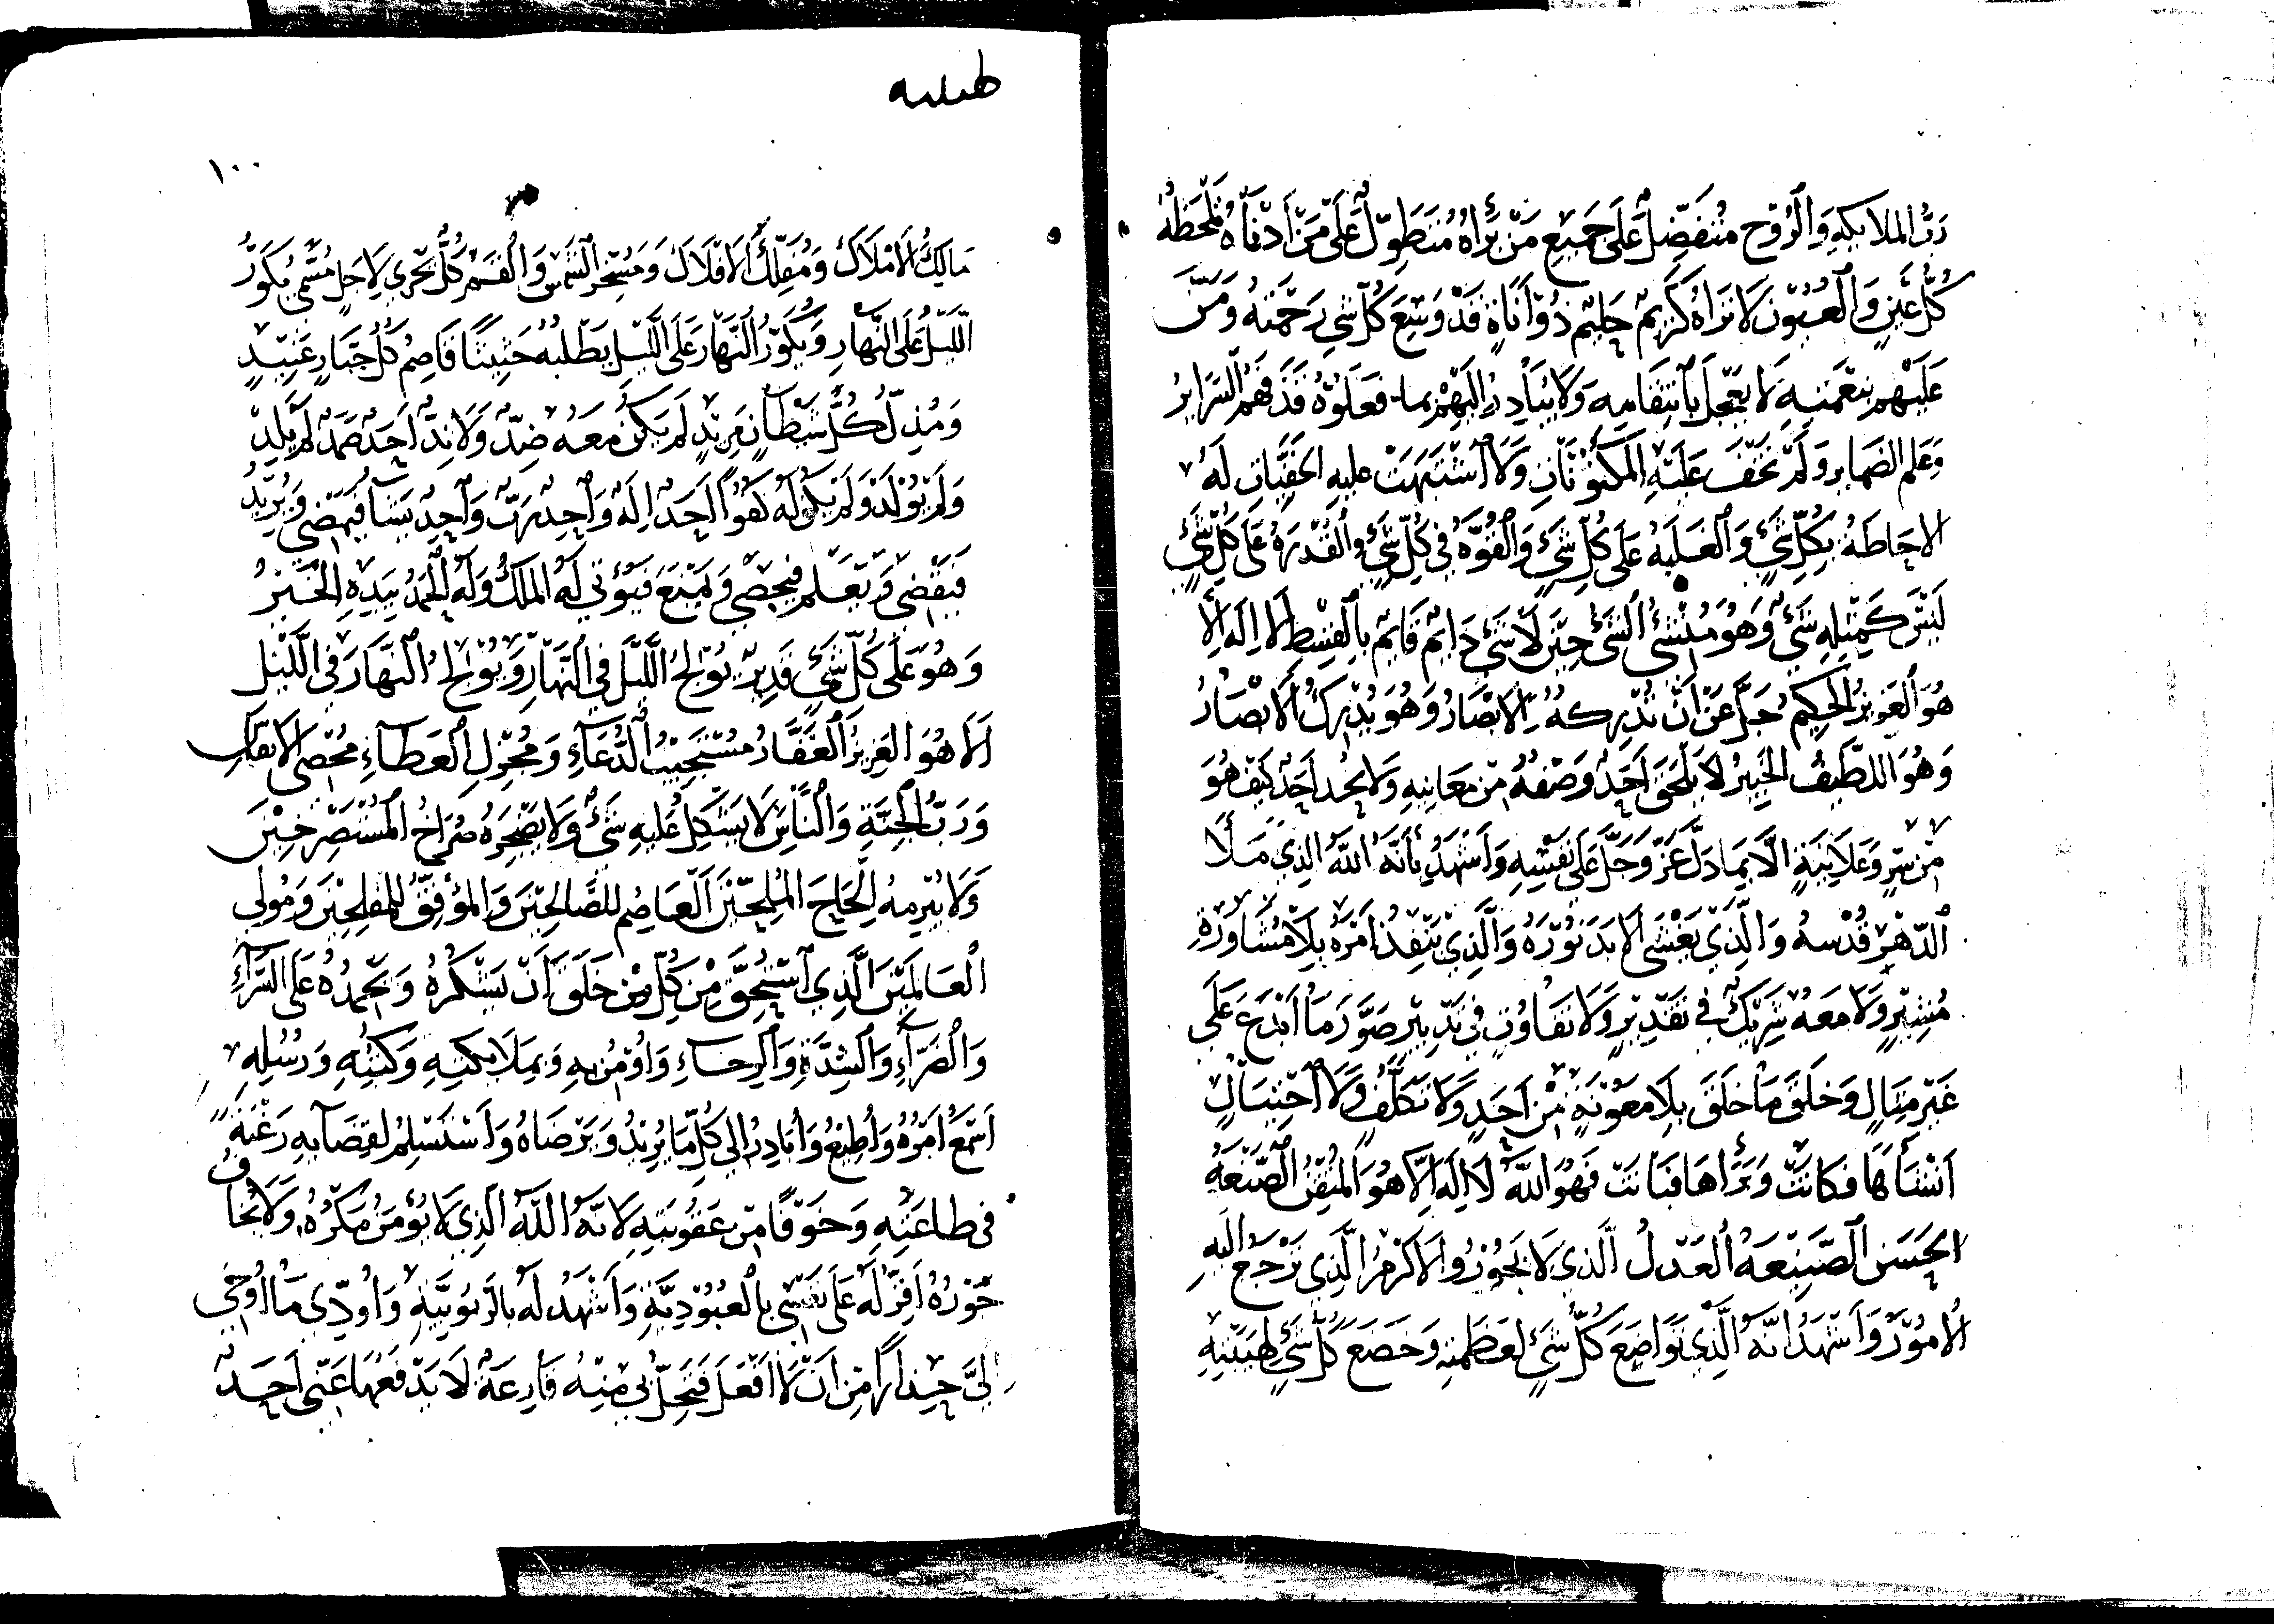 رَبُّ الملايكهِ وَالرُّوْح مُتَفَضِّلٌ عَلَى جَمِيْعِ مَنْ بَرَاهُ مُتَطَوِّلٌ عَلَى مَنْ اَدْنَاهُ يَلْحَظُهُ
كُلُّ عَيْنٍ وَالْعُيُوْن لَا تَرَاهُ كَرِيْمٌ حَلِيْمٌ ذُوْ اَنَاةٍ قَدْ وَسِعَ كُلّ شَيٍ رَحْمَتهُ وَمَنَّ
عَلَيْهِم بِنِعْمَتِهِ لَا يعَجِّل بِاْنتِقَامِهِ وَلَا يُبَادِرُ اِلَيْهِمْ بما فَعَلُوْهُ قَدْ فَهِمَ السَّرَايرَ
وَعَلم الضمَاير وَلَمْ تَخْفَ عَلَيْهِ المَكْنُوْنَاتُ وَلَا اْشْتَبَهَتْ عليهِ الخَفِيَّاتُ لَهُ
الاحَاطَةُ بِكُلِّ شَيٍ وَالغَلَبَةُ عَلَى كُلِّ شَيٍ وَالْقُوَّةُ فِي كُلِّ شَيٍ وَالْقُدْرَةُ عَلَى كُلِّ شَيٍ
لَيْسَ كَمِثْلِهِ شَيٌ وَهُوَ مُنْشِئُ الشَّيْ حِيْنَ لَا شَيَ دَايِمٌ قَايِمٌ بِالْقِسْطِ لَا اِلَهَ اِلَّا
هُوَ الْعَزِيْزُ الحَكِيْمُ جَلَّ عَنْ اَنْ تُدْرِكهُ الابْصَارُ وَهُوَ يُدْرِكُ الَابْصَارَ
وَهُوَ اللطِّيفُ الخَبِيرُ لَا يَلْحَقُ اَحَدٌ وَصْفَهُ مِن مَعَانِيهِ وَلَا يَحُد اَحَدٌ كَيْفَ هُوَ
مِنْ سِرٍ وَعَلَانِيَةٍ الَّا بِمَا دَلَّ عَزَّ وَجَلَّ عَلَى نَفْسِهِ وَاَشْهَدُ بِاَنَّهُ اللهُ الَّذِي مَلَا
الدَّهْرَ قُدْسهُ وَالَّذِي يَغْشَى الَابَد نُوْرَهُ وَالَّذِي يُنَفِّذُ اَمْرَهُ بِلَا مُشَاوَرَةِ
مُشِيْرٍ وَلَا مَعَهُ شَرِيْكٌ فِي تَقْدِيْرٍ وَلَا تَفَاوُت فِي تَدْبِيْرٍ صَوَّرَ مَا اَبْدَعَ عَلَى
غَيْرِ مِثَالٍ وَخَلَقَ مَا خَلَقَ بِلَا مَعُوْنَةٍ مِنْ اَحَدٍ وَلَا تَكَلُّفٍ وَلَا اْحْتِيَالٍ
اَنْشَأَهَا فكَانَتْ وَبَرَاهَا فَبَانَت فَهُوَ اللهُ لَا اِلَهَ اِلَّا هُوَ المُتْقِنُ الصَّنْعَةَ
الحَسَن الصَّنِيْعَةَ الْعَدْلُ الَّذي لَا يَجُوْرُ وَالَاكْرَمُ الَّذِي تَرْجعُ اليَهِ
الْامُوْرُ وَاَشْهَدُ انَّهُ الَّذِي تَوَاضَعَ كُلُّ شَيٍ لعَظَمَتِهِ وَخَضَعَ كُلُّ شَيٍ لِهَيْبَتِهِ
١٠٠
مَالِكُ الَامْلَاكِ وَمُفَلِّكُ الَافْلَاكِ وَمُسَخِّرُ الشَّمْسِ وَالْقَمَرِ كُلٌّ يَجْرِي لِاَجَلٍ مُسَمّىً يُكَوِّرُ
اللَّيْلَ عَلَى النَّهَارِ وَيُكَوِّرُ النَّهَارَ عَلَى اللَّيْلِ يَطْلبُهُ حَثِيْثًا قَاصِمُ كُلِّ جَبَّارٍ عَنِيْدٍ
وَمُذِلُّ كُلِّ شَيْطَانٍ مَرِيْدٍ لَم يَكُنْ معَهُ ضِدٌّ وَلَا نِدٌّ اَحَدٌ صَمَدٌ لَمْ يَلِدْ
وَلَمْ يُوْلَدْ وَلَمْ يَكُنْ لَهُ كفُوًا اَحَدٌ اِلَهٌ وَاحِدٌ رَبٌّ وَاحِدٌ يَشَا فَيُمْضِي وَيُرِيْدُ
فَيَقْضِي وَيَعْلَم فيُحْصِي وَيَمْنَعُ فَيُوْتِي لَهُ المُلْكُ وَلَهُ الْحَمْدُ بِيَدِهِ الْخَيْرُ
وَهُوَ عَلَى كُلِّ شَيٍ قَدِيْرٌ يُوْلِجُ اللَّيْلَ فِي النَّهَارِ وَيُوْلِجُ النَّهَارَ فِي اللَّيْلِ
اَلَا هُوَ العَزِيزُ الْغَفَّارُ مُسْتَجِيْبُ الدُّعَآءِ وَمُجْزِلُ الْعَطَآءِ مُحْصِي الَانفَاسِ
وَرَبُّ الْجِنَّةِ وَالنَّاسِ لَا يُشْكِلُ عَليهِ شَيٌ وَلَا يُضْجِرَهُ صُرَاخُ المُسْتَصْرِخِيْنَ
وَلَا يُبْرِمهُ اِلْحَاحُ المُلِحِّيْنَ الْعَاصِم للصَّالِحِيْنَ وَالمُوَفِّقُ للمُفْلِحِيْنَ وَمَوْلَى
الْعَالمَيْنَ الَّذِي اْسْتَحَقَّ مِنْ كُلِّ مَنْ خَلَقَ اَنْ يَشْكُرَهُ وَيَحْمِدَهُ عَلَى السَّرَآءِ
وَالضَّرَّآءِ وَالشِّدَّةِ وَالرخَاءِ وَاُوْمِنُ بهِ وَبِمَلَايِكَتِهِ وَكُتُبِهِ وَرُسُلِهِ
اَسْمَعُ اَمْرَهُ وَاُطِيعُ وَاُبَادِرُ الِى كُلِّ مَا يُرِيْدُ وَيَرْضَاهُ وَاَسْتَسْلِمُ لقِضَآيهِ رَغْبَةً
فِي طَاعَتِهِ وَخَوْفًا مِن عَقُوْبَتِهِ لَانَّهُ اللهُ الَّذِي لَا يُوْمَنُ مَكْرُهُ وَلَا يُخَافُ
جَوْرُهُ اُقِرُّ لَهُ عَلَى نَفْسِي بِالْعُبُوْدِيَّةِ وَاَشْهَدُ لَهُ بالرُبُوْبِيَّةِ وَاُوَدِّي مَا اُوْحِيَ
اِليَّ حِذَارًا مِنْ اَنْ لَا اَفْعَلَ فَتَحِلَّ بِي مِنْهُ قَارِعَةٌ لَا يَدْفَعُهَا عَنِّي اَحَدٌ